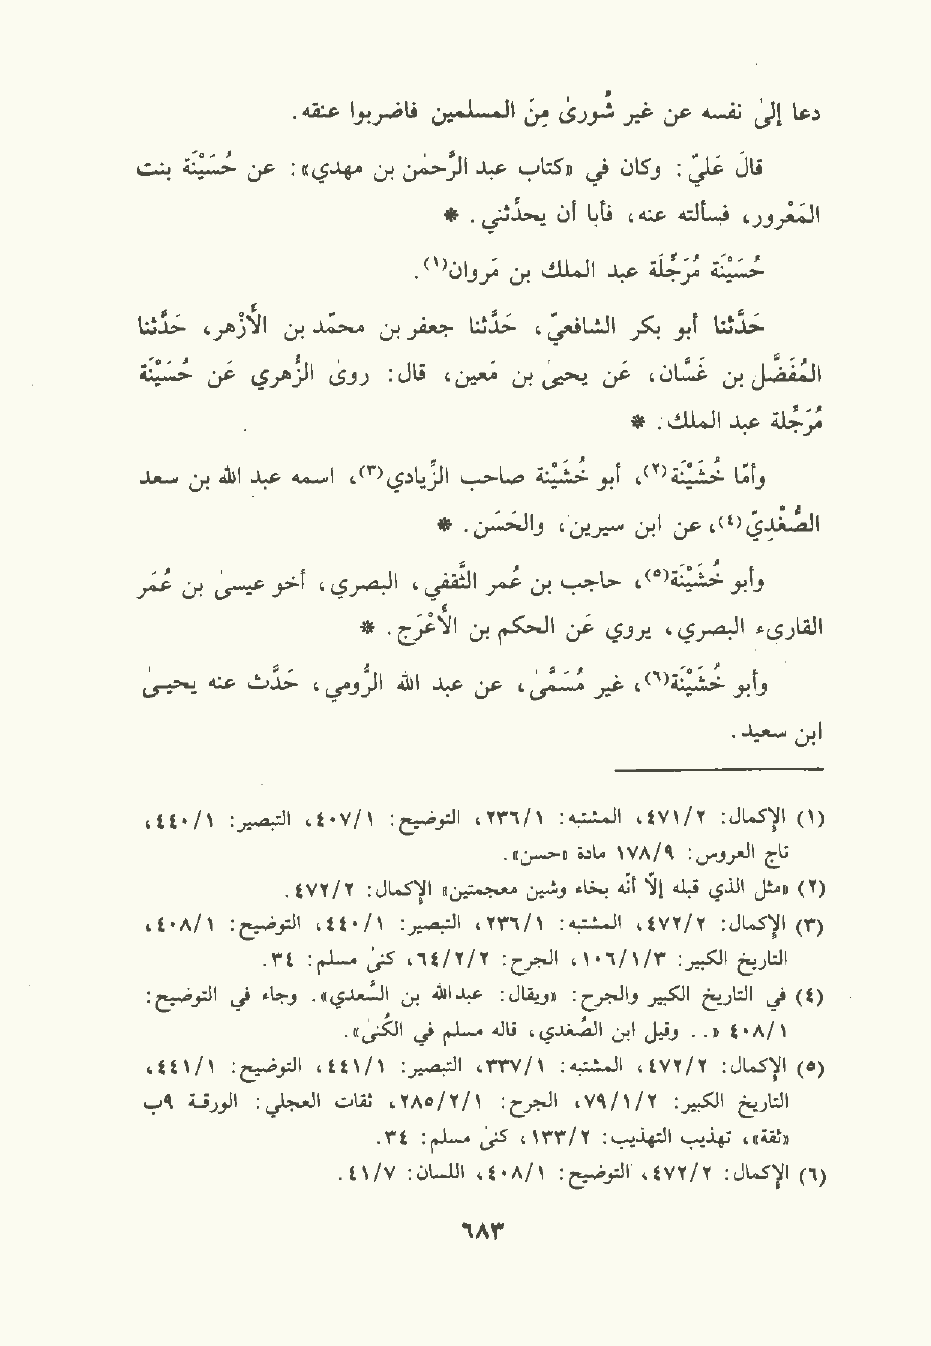 دعا إلىٰ نفسه عن غير شُورىٰ مِنَ المسلمين فاضربوا عنقه.
قالَ عَليّ: وكان في «كتاب عبد الرَّحمٰن بن مهدي»: عن حُسَيْنَة بنت
المَعْرور، فسألته عنه، فأبا أن يحدِّثني. *
حُسَيْنَة مُرَجِّلَة عبد الملك بن مَروان(١).
حَدَّثنا أبو بكر الشافعيّ، حَدَّثنا جعفر بن محمّد بن الأَزْهر، حَدَّثنا
المُفَضَّل بن غَسَّان، عَن يحيىٰ بن مَعين، قال: روىٰ الزُّهري عَن حُسَيْنَة
مُرَجِّلة عبد الملك. *
وأمّا خُشَيْنَة(٢)، أبو خُشَيْنة صاحب الزِّيادي(٣)، اسمه عبد الله بن سعد
الصُّغْديّ(٤)، عن ابن سيرين، والحَسَن. *
وأبو خُشَيْنَة(٥)، حاجب بن عُمر الثَّقفي، البصري، أخو عيسىٰ بن عُمَر
القارىء البصري، يروي عَن الحكم بن الأَعْرَج. *
وأبو خُشَيْنَة(٦)، غير مُسَمَّىٰ، عن عبد الله الرُّومي، حَدَّث عنه يحيىٰ
ابن سعيد.
(١) الإكمال: ٤٧١/٢، المشتبه: ٢٣٦/١، التوضيح: ٤٠٧/١، التبصير: ٤٤٠/١،
تاج العروس: ١٧٨/٩ مادة «حسن».
(٢) «مثل الذي قبله إلاّ أنّه بخاء وشين معجمتين» الإكمال: ٤٧٢/٢.
(٣) الإكمال: ٤٧٢/٢، المشتبه: ٢٣٦/١، التبصير: ٤٤٠/١، التوضيح: ٤٠٨/١،
التاريخ الكبير: ١٠٦/١/٣، الجرح: ٦٤/٢/٢، كنىٰ مسلم: ٣٤.
(٤) في التاريخ الكبير والجرح: «ويقال: عبدالله بن السَّعدي». وجاء في التوضيح:
٤٠٨/١ «.. وقيل ابن الصُّغدي، قاله مسلم في الكُنىٰ».
(٥) الإكمال: ٤٧٢/٢، المشتبه: ٣٣٧/١، التبصير: ٤٤١/١، التوضيح: ٤٤١/١،
التاريخ الكبير: ٧٩/١/٢، الجرح: ٢٨٥/٢/١، ثقات العجلي: الورقة ٩ب
«ثقة»، تهذيب التهذيب: ١٣٣/٢، كنىٰ مسلم: ٣٤.
(٦) الإكمال: ٤٧٢/٢، التوضيح: ٤٠٨/١، اللسان: ٤١/٧.
٦٨٣